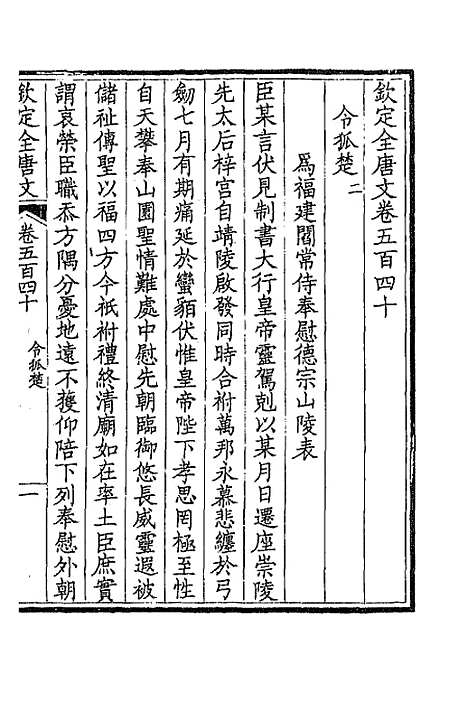 欽定全唐文卷五百四十
令狐楚二
為福建閻常侍奉慰德宗山陵表
臣某言伏見制書大行皇帝靈駕剋以某月日遷座崇陵
先太后梓宮自靖陵啟發同時合祔萬邦永慕悲纏於弓
劒七月有期痛延於蠻貊伏惟皇帝陛下孝思罔極至性
自天攀奉山園聖情難處中慰先朝臨御悠長威靈遐被
儲祉傳聖以福四方今祇祔禮終清廟如在率土臣庶實
謂哀榮臣職忝方隅分憂地遠不獲仰陪下列奉慰外朝
欽定全唐文
卷五百四十
令狐楚
一